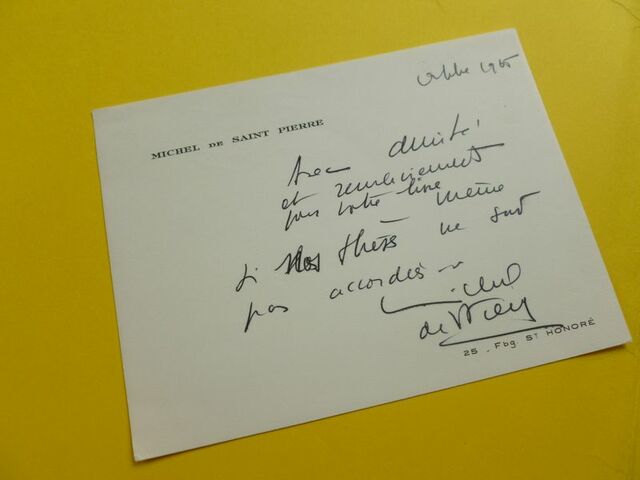 octobre 1965
MICHEL DE SAINT PIERRE
Avec amitié
et remerciement
pour votre livre
si nos thèses même ne sont
pas accordées
Michel
de St Pierre
25 . Fbg. ST HONORÉ